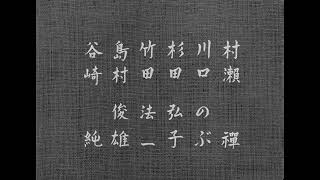 村瀨禪
川口のぶ
杉田弘子
竹田法一
島村俊雄
谷崎純